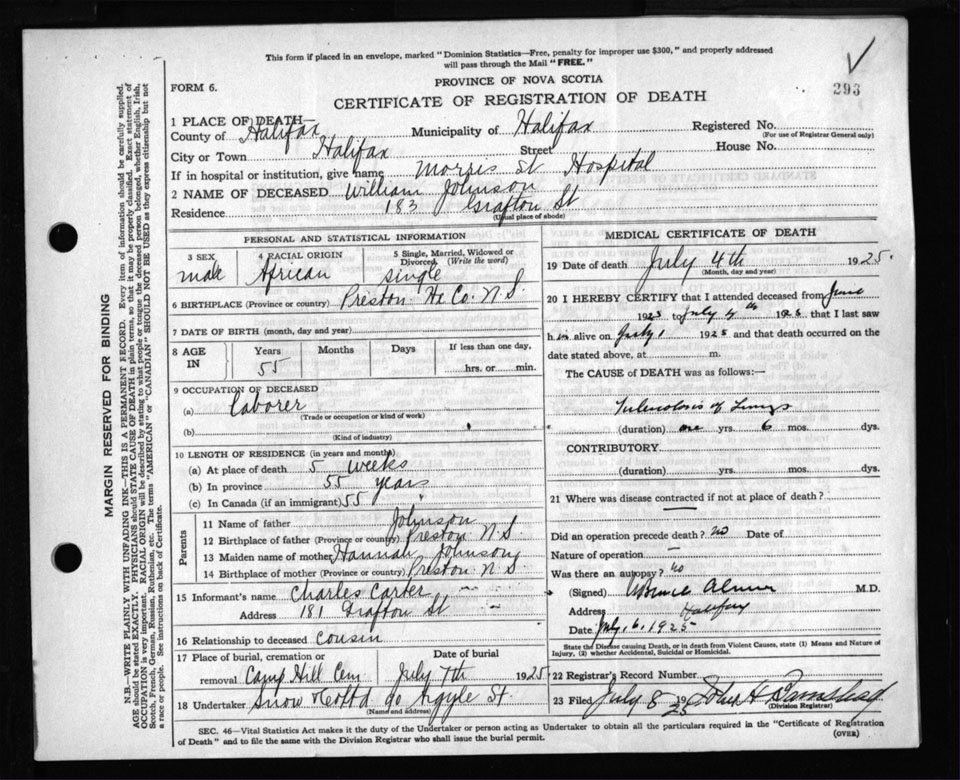 This form if placed in an envelope, marked "Dominion Statistics—Free, penalty for improper use $300," and properly addressed
will pass through the Mail "FREE."
PROVINCE OF NOVA SCOTIA
FORM 6.
CERTIFICATE OF REGISTRATION OF DEATH
293
1 PLACE OF DEATH—
County of Halifax Municipality of Halifax Registered No.
(For use of Registrar General only)
City or Town Halifax Street House No.
If in hospital or institution, give name Morris St Hospital
2 NAME OF DECEASED William Johnson
Residence 183 Grafton St
(Usual place of abode)
PERSONAL AND STATISTICAL INFORMATION
3 SEX 4 RACIAL ORIGIN 5 Single, Married, Widowed or
Divorced (Write the word)
male African single
6 BIRTHPLACE (Province or country) Preston Hx Co. N.S.
7 DATE OF BIRTH (month, day and year)
8 AGE IN Years Months Days If less than one day,
55 hrs. or min.
9 OCCUPATION OF DECEASED
(a) Laborer
(Trade or occupation or kind of work)
(b)
(Kind of industry)
10 LENGTH OF RESIDENCE (in years and months)
(a) At place of death 5 weeks
(b) In province 55 years
(c) In Canada (if an immigrant) 55 "
Parents
11 Name of father Johnson
12 Birthplace of father (Province or country) Preston N.S.
13 Maiden name of mother Hannah Johnson
14 Birthplace of mother (Province or country) Preston N S
15 Informant's name Charles Carter
Address 181 Grafton St
16 Relationship to deceased cousin
17 Place of burial, cremation or Date of burial
removal Camp Hill Cem July 7th 1925
18 Undertaker Snow & Co Ltd 90 Argyle St.
(Name and address)
MEDICAL CERTIFICATE OF DEATH
19 Date of death July 4th 1925.
(Month, day and year)
20 I HEREBY CERTIFY that I attended deceased from June
1925 to July 4th 1925 that I last saw
him alive on July 1 1925 and that death occurred on the
date stated above, at m.
The CAUSE of DEATH was as follows:—
Tuberculosis of Lungs
(duration) one yrs. 6 mos. dys.
CONTRIBUTORY.
(duration) yrs. mos. dys.
21 Where was disease contracted if not at place of death?
Did an operation precede death? no Date of
Nature of operation —
Was there an autopsy? no
(Signed) M.D.
Address Halifax
Date July, 6, 1925
State the Disease causing Death, or in death from Violent Causes, state (1) Means and Nature of
Injury, (2) whether Accidental, Suicidal or Homicidal.
22 Registrar's Record Number
23 Filed July 8 1925 John H Barnstead
(Division Registrar)
SEC. 46—Vital Statistics Act makes it the duty of the Undertaker or person acting as Undertaker to obtain all the particulars required in the "Certificate of Registration
of Death" and to file the same with the Division Registrar who shall issue the burial permit.
(OVER)
MARGIN RESERVED FOR BINDING
N.B.—WRITE PLAINLY WITH UNFADING INK—THIS IS A PERMANENT RECORD. Every item of information should be carefully supplied.
AGE should be stated EXACTLY. PHYSICIANS should STATE CAUSE OF DEATH in plain terms, so that it may be properly classified. Exact statement of
OCCUPATION is very important. RACIAL ORIGIN will be described by stating to what people or tongue the deceased person belonged, whether English, Irish,
Scotch, French, German, Russian, Ruthenian, etc. The terms "AMERICAN" or "CANADIAN" SHOULD NOT BE USED as they express citizenship but not
a race or people. See instructions on back of Certificate.